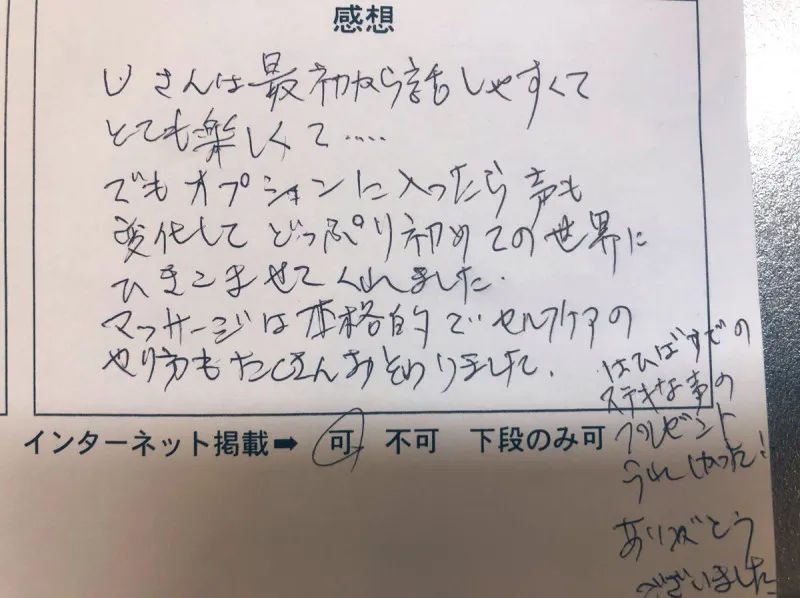 感想
Uさんは最初から話しやすくて
とても楽しくて....
でもオプションに入ったら声も
変化してどっぷり初めての世界に
ひきこませてくれました.
マッサージは本格的でセルフケアの
やり方もたくさんおそわりました.
インターネット掲載➡ 可 不可 下段のみ可
での
ステキな声の
プレゼント
うれしかった!
ありがとう
ございました